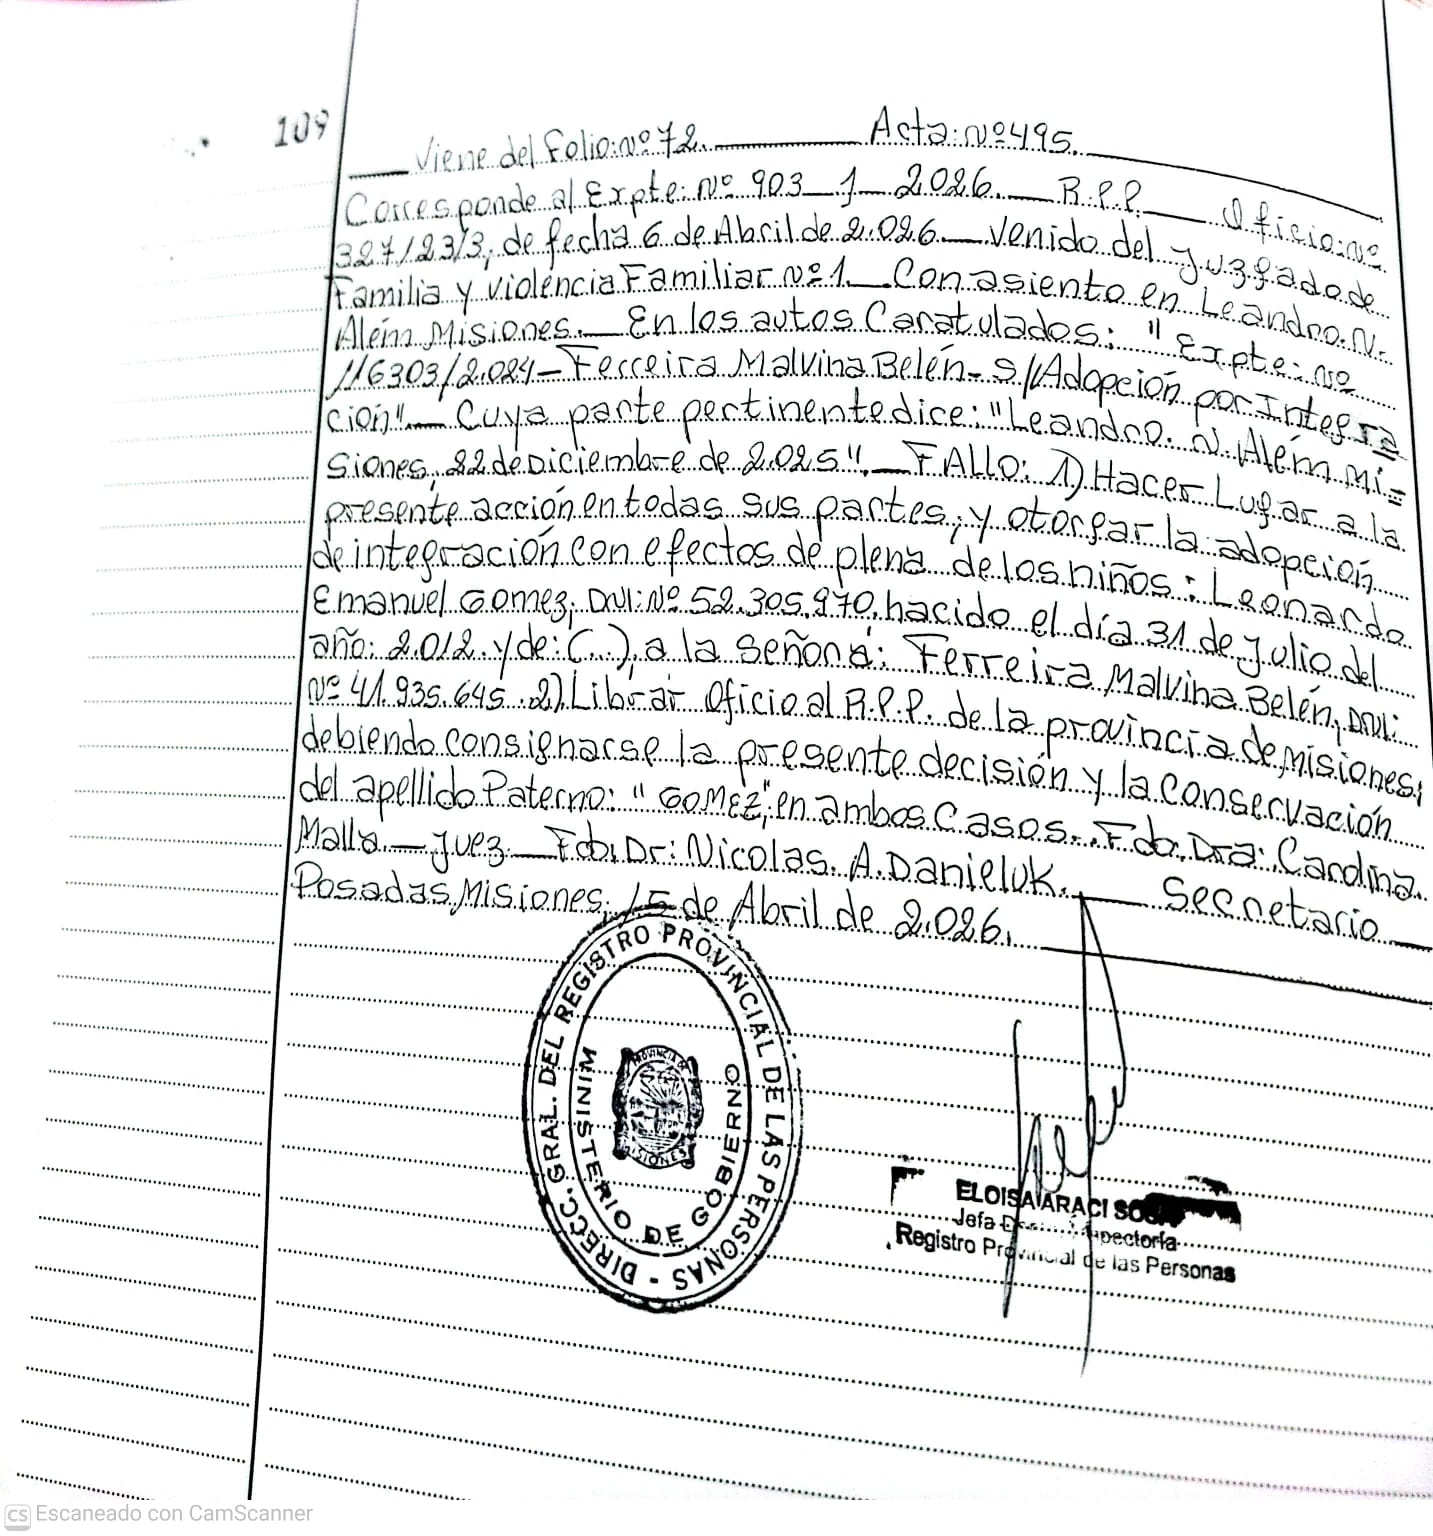 109
Viene del Folio: Nº 72. Acta: Nº 495.
Corresponde al Expte: Nº 903 _ J _ 2.026. _ R.P.P. _ Oficio: Nº
327/23/3, de fecha 6 de Abril de 2.026 _ Venido del Juzgado de
Familia y Violencia Familiar Nº 1 _ Con asiento en Leandro. N.
Além Misiones. _ En los autos Caratulados: "Expte: Nº
116303/2.024 – Ferreira Malvina Belén – S/ Adopción por Integra
ción" _ Cuya parte pertinente dice: "Leandro. N. Além. Mi=
siones, 22 de Diciembre de 2.025". _ FALLO: 1) Hacer Lugar a la
presente acción en todas sus partes, y otorgar la adopción
de integración con efectos de plena de los niños: Leonardo
Emanuel Gomez, DNI: Nº 52.305.970, nacido el día 31 de Julio del
año: 2.012. y de: (...), a la Señora: Ferreira Malvina Belén, DNI:
Nº 41.935.645. 2) Librar Oficio al R.P.P. de la provincia de Misiones;
debiendo consignarse la presente decisión y la Conservación
del apellido Paterno: "GOMEZ", en ambos Casos. Fdo. Dra: Carolina.
Malla. _ Juez _ Fdo. Dr: Nicolas. A. Danieluk. _ Secretario
Posadas, Misiones, 15 de Abril de 2.026.
DIRECC. GRAL. DEL REGISTRO PROVINCIAL DE LAS PERSONAS -
MINISTERIO DE GOBIERNO
PROVINCIA DE
MISIONES
ELOISA ARACI
Jefa
Registro Provincial de las Personas
CS Escaneado con CamScanner